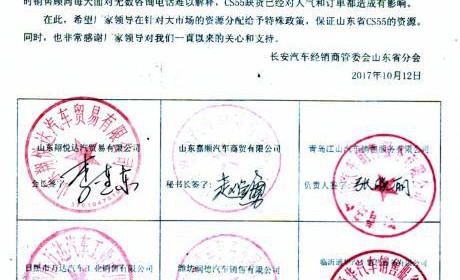 的销售顾问每天面对无数咨询电话难以解释，CS55缺货已经对人气和订单都造成有影响。
在此，希望厂家领导在针对大市场的资源分配给予特殊政策，保证山东省CS55的资源。
同时，也非常感谢厂家领导对我们一直以来的关心和支持。
长安汽车经销商管委会山东省分会
2017年10月12日
山东翔悦达汽贸易有限公司
会长签字：
山东嘉顺汽车商贸有限公司
秘书长签字：
青岛江山汽车销售服务有限公司
负责人签字：
日照市万达汽车工业销售有限公司
潍坊润德汽车销售有限公司